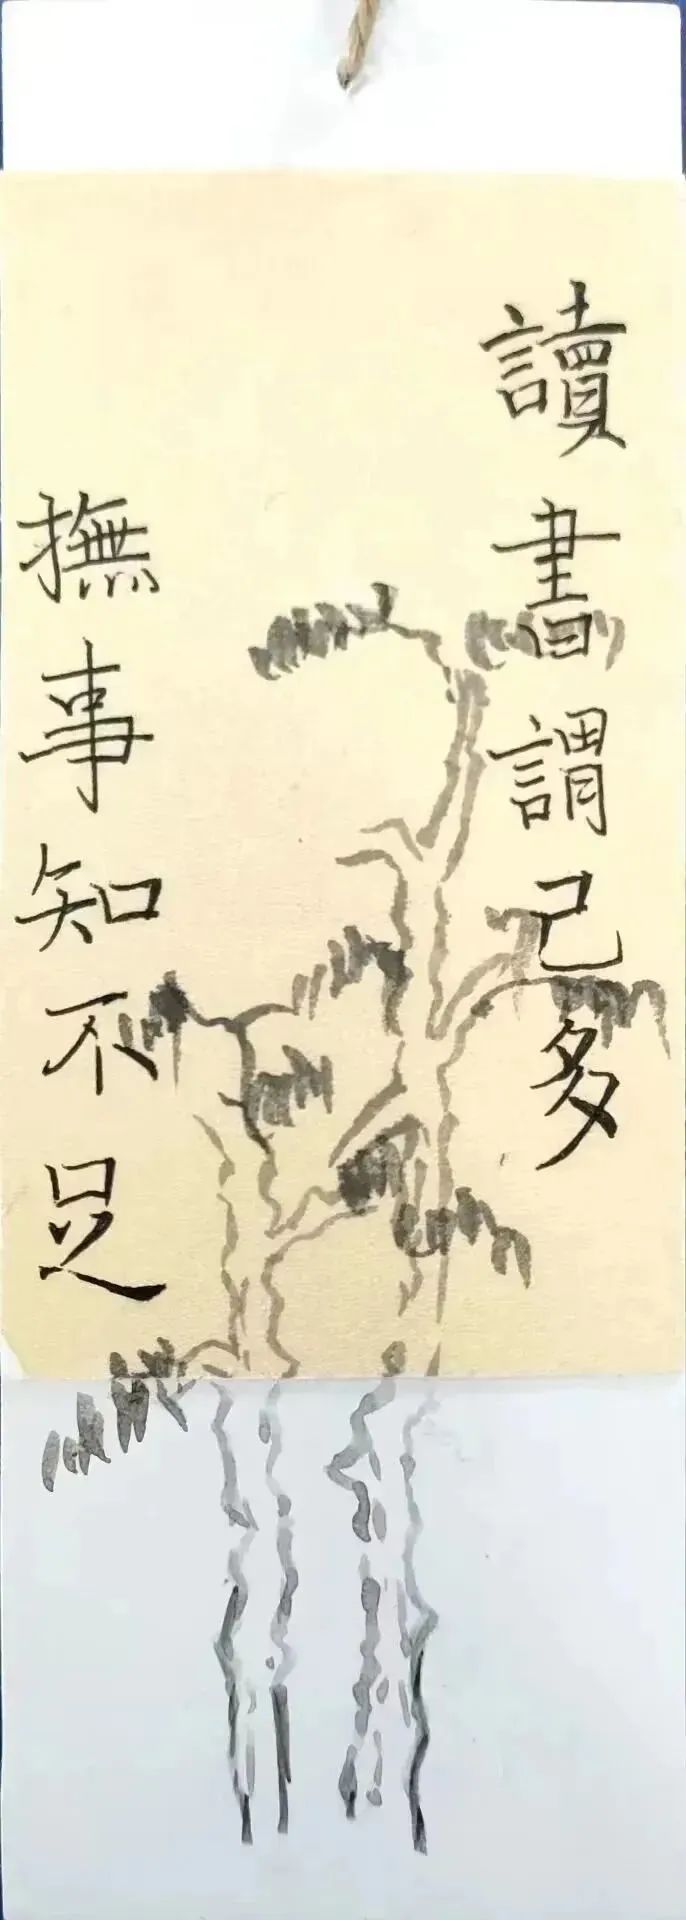 讀書謂已多
撫事知不足